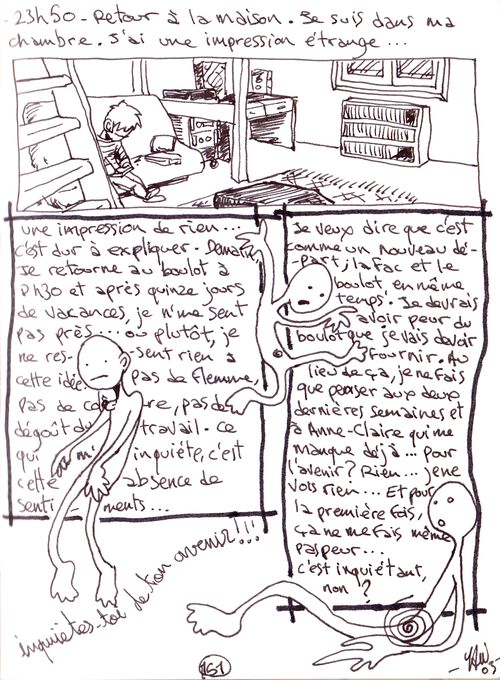 23h50 - Retour à la maison. Je suis dans ma
chambre. J'ai une impression étrange...
une impression de rien...
c'est dur à expliquer. Demain
Je retourne au boulot à
9h30 et après quinze jours
de vacances, je n'me sent
pas près... ou plutôt, je
ne res- -sent rien à
cette idée, pas de flemme,
pas de co re, pas de
dégoût du travail. Ce
qui m' inquiète, c'est
cette absence de
senti- ments...
Je veux dire que c'est
comme un nouveau dé-
-part, la fac et le
boulot, en même
temps. Je devrais
avoir peur du
boulot que je vais devoir
fournir. Au
lieu de ça, je ne fais
que penser aux deux
dernières semaines et
à Anne-Claire qui me
manque déjà... Pour
l'avenir? Rien... je ne
vois rien... Et pour
la première fois,
ça ne me fais même
pas peur...
c'est inquiétant,
non?
inquiètes-toi de ton avenir!!!
151
05